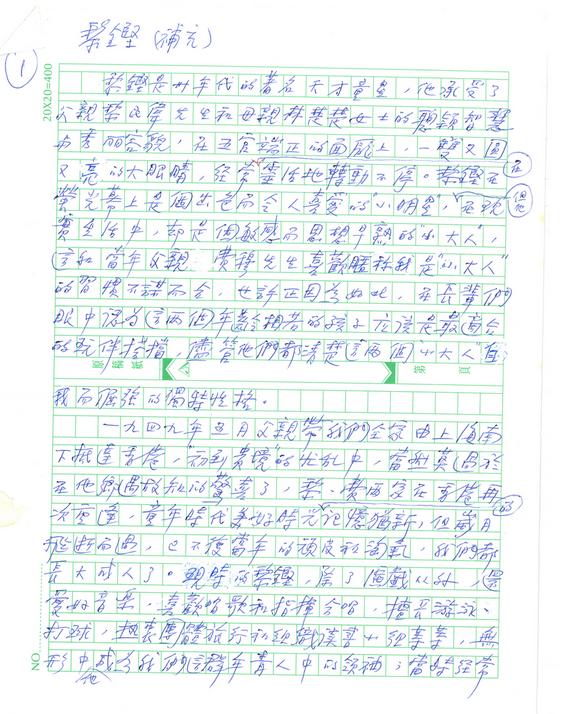 黎鏗（補充）
1
20X20=400
黎鏗是卅年代的著名天才童星，他承受了
父親黎民偉先生和母親林楚楚女士的聰穎智慧
与秀丽容貌，在五官端正的面龐上，一雙又圓
又亮的大眼睛，經常靈活地轉動不停。黎鏗在
螢光幕上是個出色而令人喜愛的“小明星”，在現
但他
實生活中，却是個敏感而思想早熟的“小大人”，
這和當年父親 費穆先生喜歡膩稱我是“小大人”
的習慣不謀而合，也許正因為如此，在長輩們
眼中認為這兩個年齡相若的孩子應該是最適合
的玩伴搭擋，儘管他們都清楚這兩個“小大人”自
原稿紙
第 頁
我而倔强的獨特性格。
一九四九年五月父親帶我們全家由上海南
下抵達香港，“初到貴境”的忙乱中，當然莫過於
在他鄉遇故知的驚喜了，黎、費两家在香港再
的
次重逢，童年時代美好時光記憶猶新，但歲月
飛逝而過，已不復當年的頑皮和淘氣，我們都
長大成人了。現時的黎鏗，除了演戲以外，還
愛好音乐，喜歡唱歌和指揮合唱，擅長游泳、
打球，執著團體旅行和組織讀書小組等等，無
形中成為我們這群年青人中的領袖；當時經常
他
NO.